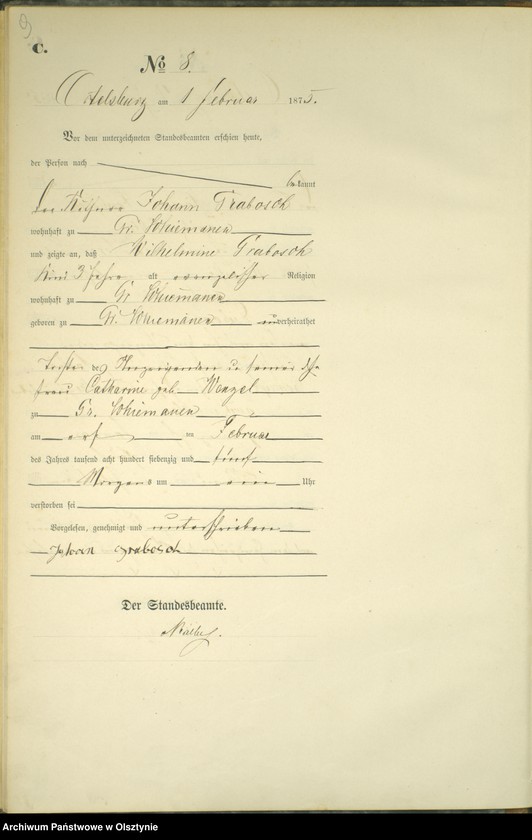 C.
No 8.
Ortelsburg am 1 Februar 1875.
Vor dem unterzeichneten Standesbeamten erschien heute,
der Person nach
bekannt
Johann Grabosch
wohnhaft zu Gr. Schiemanen
und zeigte an, daß Wilhelmine Grabosch
Kind 3 Jahre alt evangelischer Religion
wohnhaft zu Gr Schiemanen
geboren zu Gr. Schiemanen unverheirathet
Tochter des Anzeigenden u. seiner Ehe
frau Catharine geb. Wenzel
zu Gr. Schiemanen
am ten Februar
des Jahres tausend acht hundert siebenzig und fünf
Morgens um Uhr
verstorben sei
Vorgelesen, genehmigt und unterschrieben
Johan Grabosch
Der Standesbeamte.
Archiwum Państwowe w Olsztynie